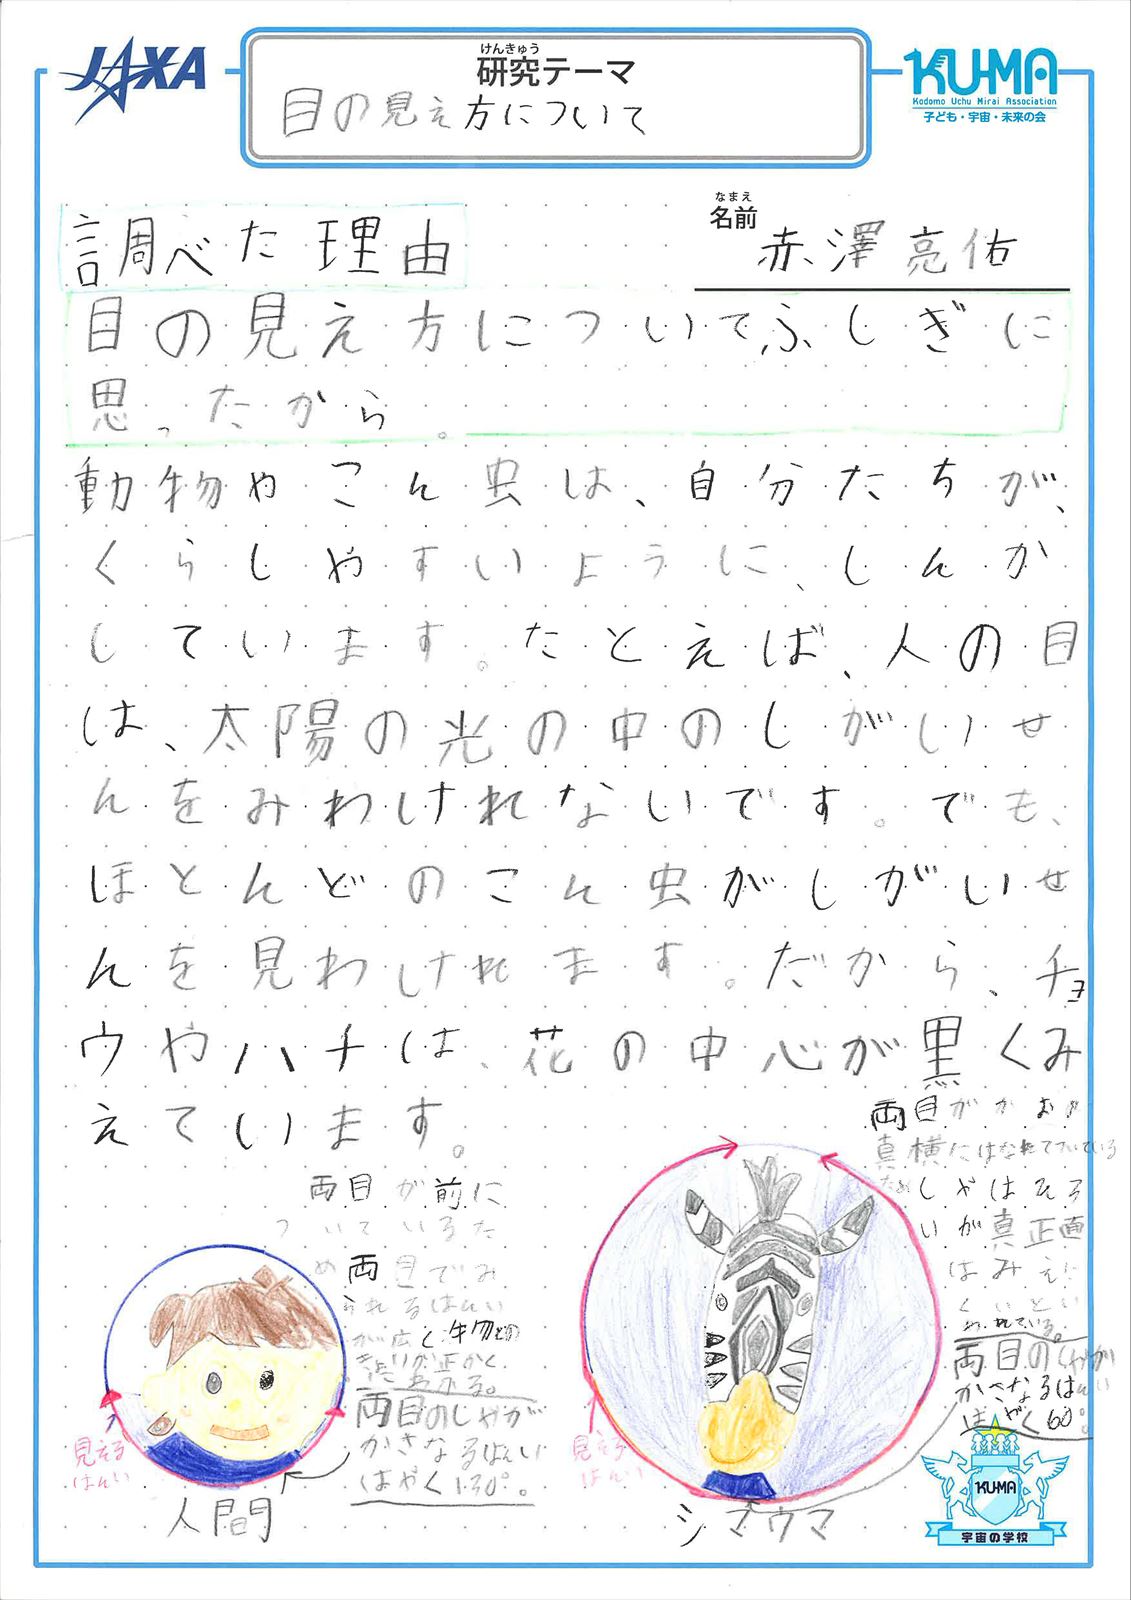 JAXA
けんきゅう
研究テーマ
目の見え方について
KU-MA
Kodomo Uchu Mirai Association
子ども・宇宙・未来の会
なまえ
名前
赤澤亮佑
調べた理由
目の見え方についてふしぎに
思ったから。
動物やこん虫は、自分たちが、
くらしやすいように、しんか
しています。たとえば、人の目
は、太陽の光の中のしがいせ
んをみわけれないです。でも、
ほとんどのこん虫がしがいせ
んを見わけれます。だから、チョ
ウやハチは、花の中心が黒くみ
えています。
両目が前に
ついているた
め両目でみ
られるはんい
が広く 物との
きょりが正かく
にわかる。
両目のしやが
かさなるはんい
はやく130°。
見える
はんい
人間
両目がかおの
真横にはなれてついている
ためしやはひろ
いが真正面
はみえに
くいとい
われている。
両目のしやが
かさなるはんい
はやく60°。
見える
はんい
シマウマ
KU-MA
宇宙の学校